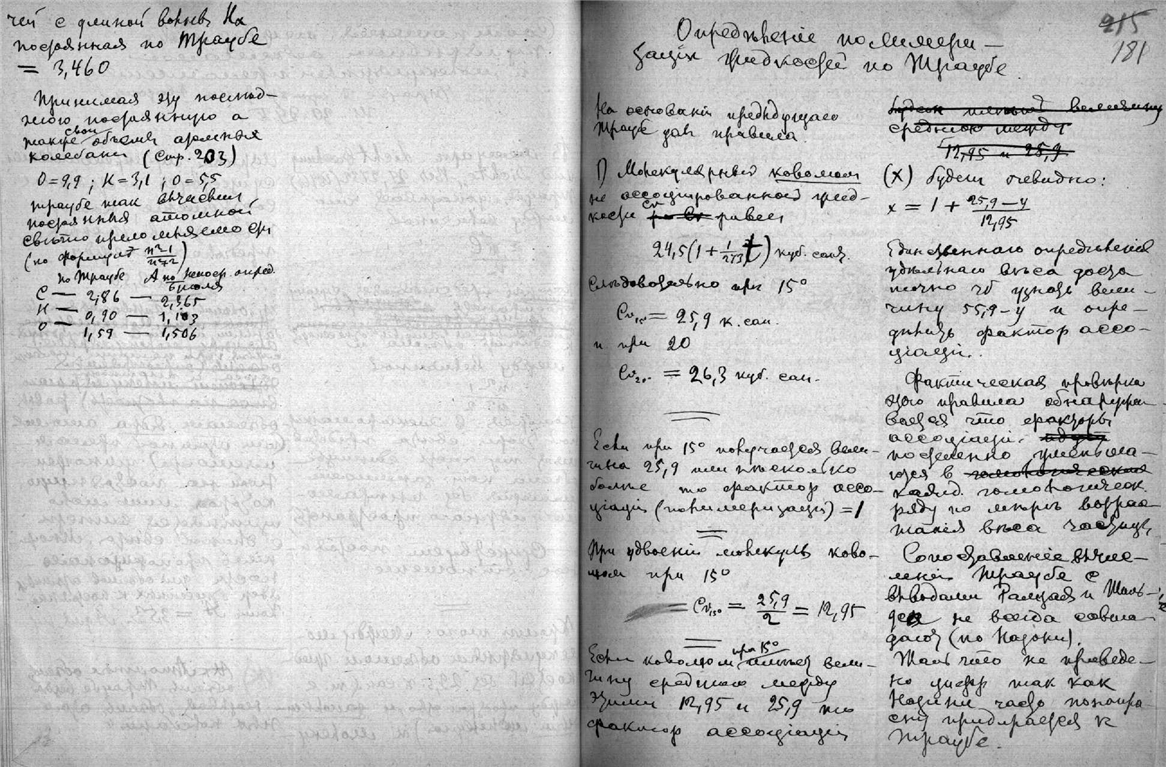 чей с длиной волны На
постоянная по Траубе
= 3,460
Принимая эту послед-
нюю постоянную а
также свои объемы атомных
колебани (Стр. 203)
O=9,9 ; H=3,1 ; O=5,5
Траубе так вычислил
постоянныя атомной
(по формуле n²-1/n²+2)
по Траубе А по непоср. опред.
Брюля
C — 2,86 — 2,365
H — 0,90 — 1,103
O — 1,59 — 1,506
215
181
Определенiе полимери-
зацiи жидкостей по Траубе.
На основанiи предыдущаго
Траубе дал правила
1) Молекулярный коволюм
не ассоцiированной жид-
кости Cv равен
24,5(1 + 1/273 t) куб. сант.
Следовательно при 15°
Cv15° = 25,9 к. сан.
и при 20
Cv20° = 26,3 куб. сан.
Если при 15° получается вели-
чина 25,9 или несколько
более то фактор ассо-
цiацiи (полимеризацiи) = 1
При удвоенiй молекуле ково-
люм при 15°
Cv15° = 25,9/2 = 12,95
Если коволюм при 15° вели-
чину среднюю между
этими 12,95 и 25,9 то
фактор ассоцiацiи
будет величину
среднюю между
12,95 и 25,9
(x) будет очевидно:
x = 1 + 25,9-y/12,95
Единственнаго определенiя
удельнаго веса доста
точно чтоб узнать вели-
чину 55,9-y и опре-
делить фактор ассо-
цiацiи.
Фактическая проверка
этого правила обнаружи
вается что факторы
ассоцiацiи
постепенно уменьша-
ются в
кажд. гомологическ.
ряду по мере возрас-
танiя веса частицы,
Сопоставленiе вычис-
ленiй Траубе с
выводами Рамзая и Шиль-
дса не всегда совпа-
дают (по Назони).
Жаль что не приведе-
но цифр так как
Назини часто понапра-
сну придирается к
Траубе.